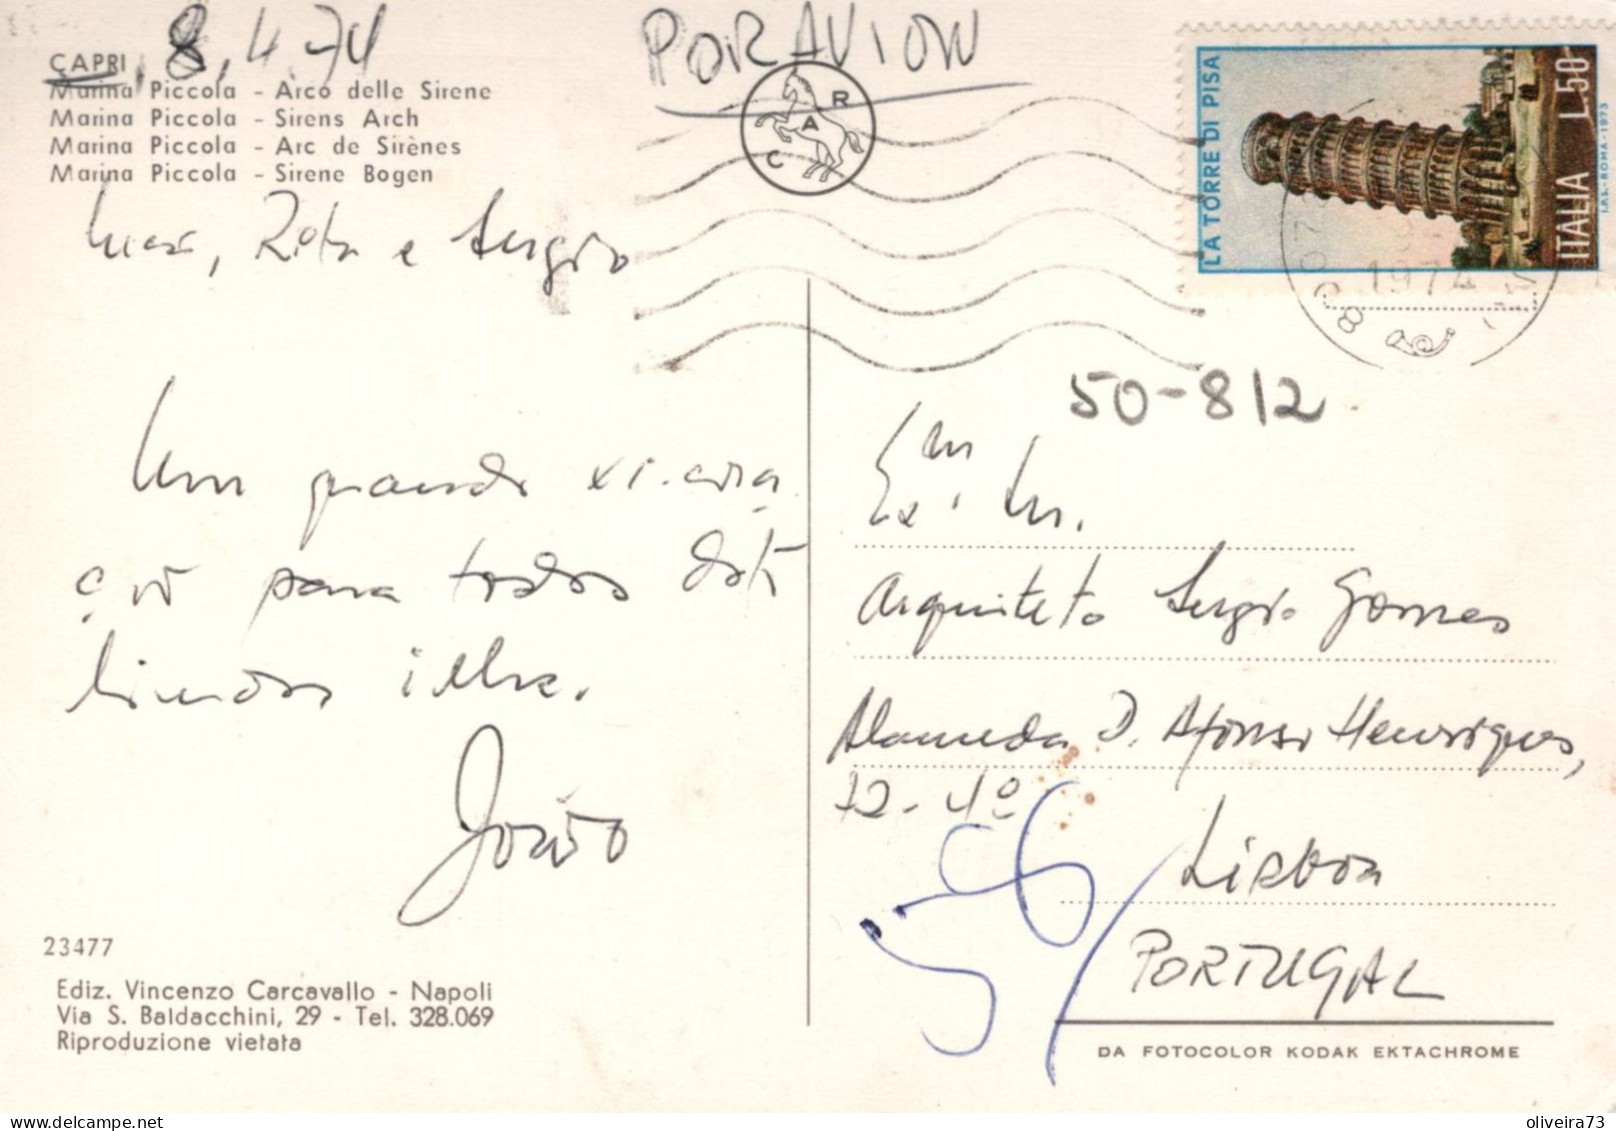 CAPRI, 8.4-74
Marina Piccola - Arco delle Sirene
Marina Piccola - Sirens Arch
Marina Piccola - Arc de Sirènes
Marina Piccola - Sirene Bogen
POR AVION
C A R
LA TORRE DI PISA
ITALIA L.50
I.P.S.-ROMA-1973
1974
Rita e Sergio
Um grande xi-cora
ção para todos desta
lindissima ilha.
João
50-812
Exm. Sr.
Arquiteto Sergio Gomes
Alameda D. Afonso Henriques,
72-4º
Lisboa
PORTUGAL
56/
23477
Ediz. Vincenzo Carcavallo - Napoli
Via S. Baldacchini, 29 - Tel. 328.069
Riproduzione vietata
DA FOTOCOLOR KODAK EKTACHROME
oliveira73